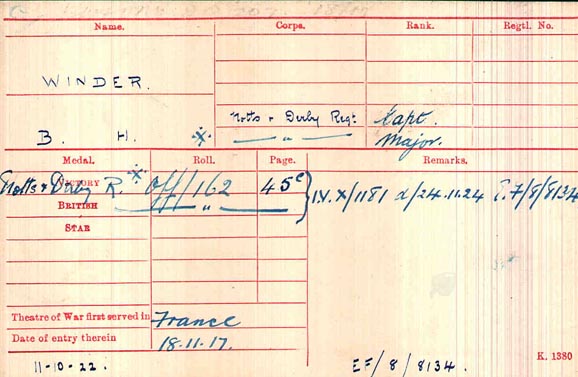 Name. Corps. Rank. Regtl. No.
WINDER.
Notts & Derby Regt. Capt.
B. H. * — " — Major.
Medal. Roll. Page. Remarks.
VICTORY Notts & Derby R. * Off/162 45c I.V.X/1181 d/24.11.24
BRITISH — " —
STAR
Theatre of War first served in France
Date of entry therein 18.11.17.
K. 1380
11-10-22. EF/8/8134.